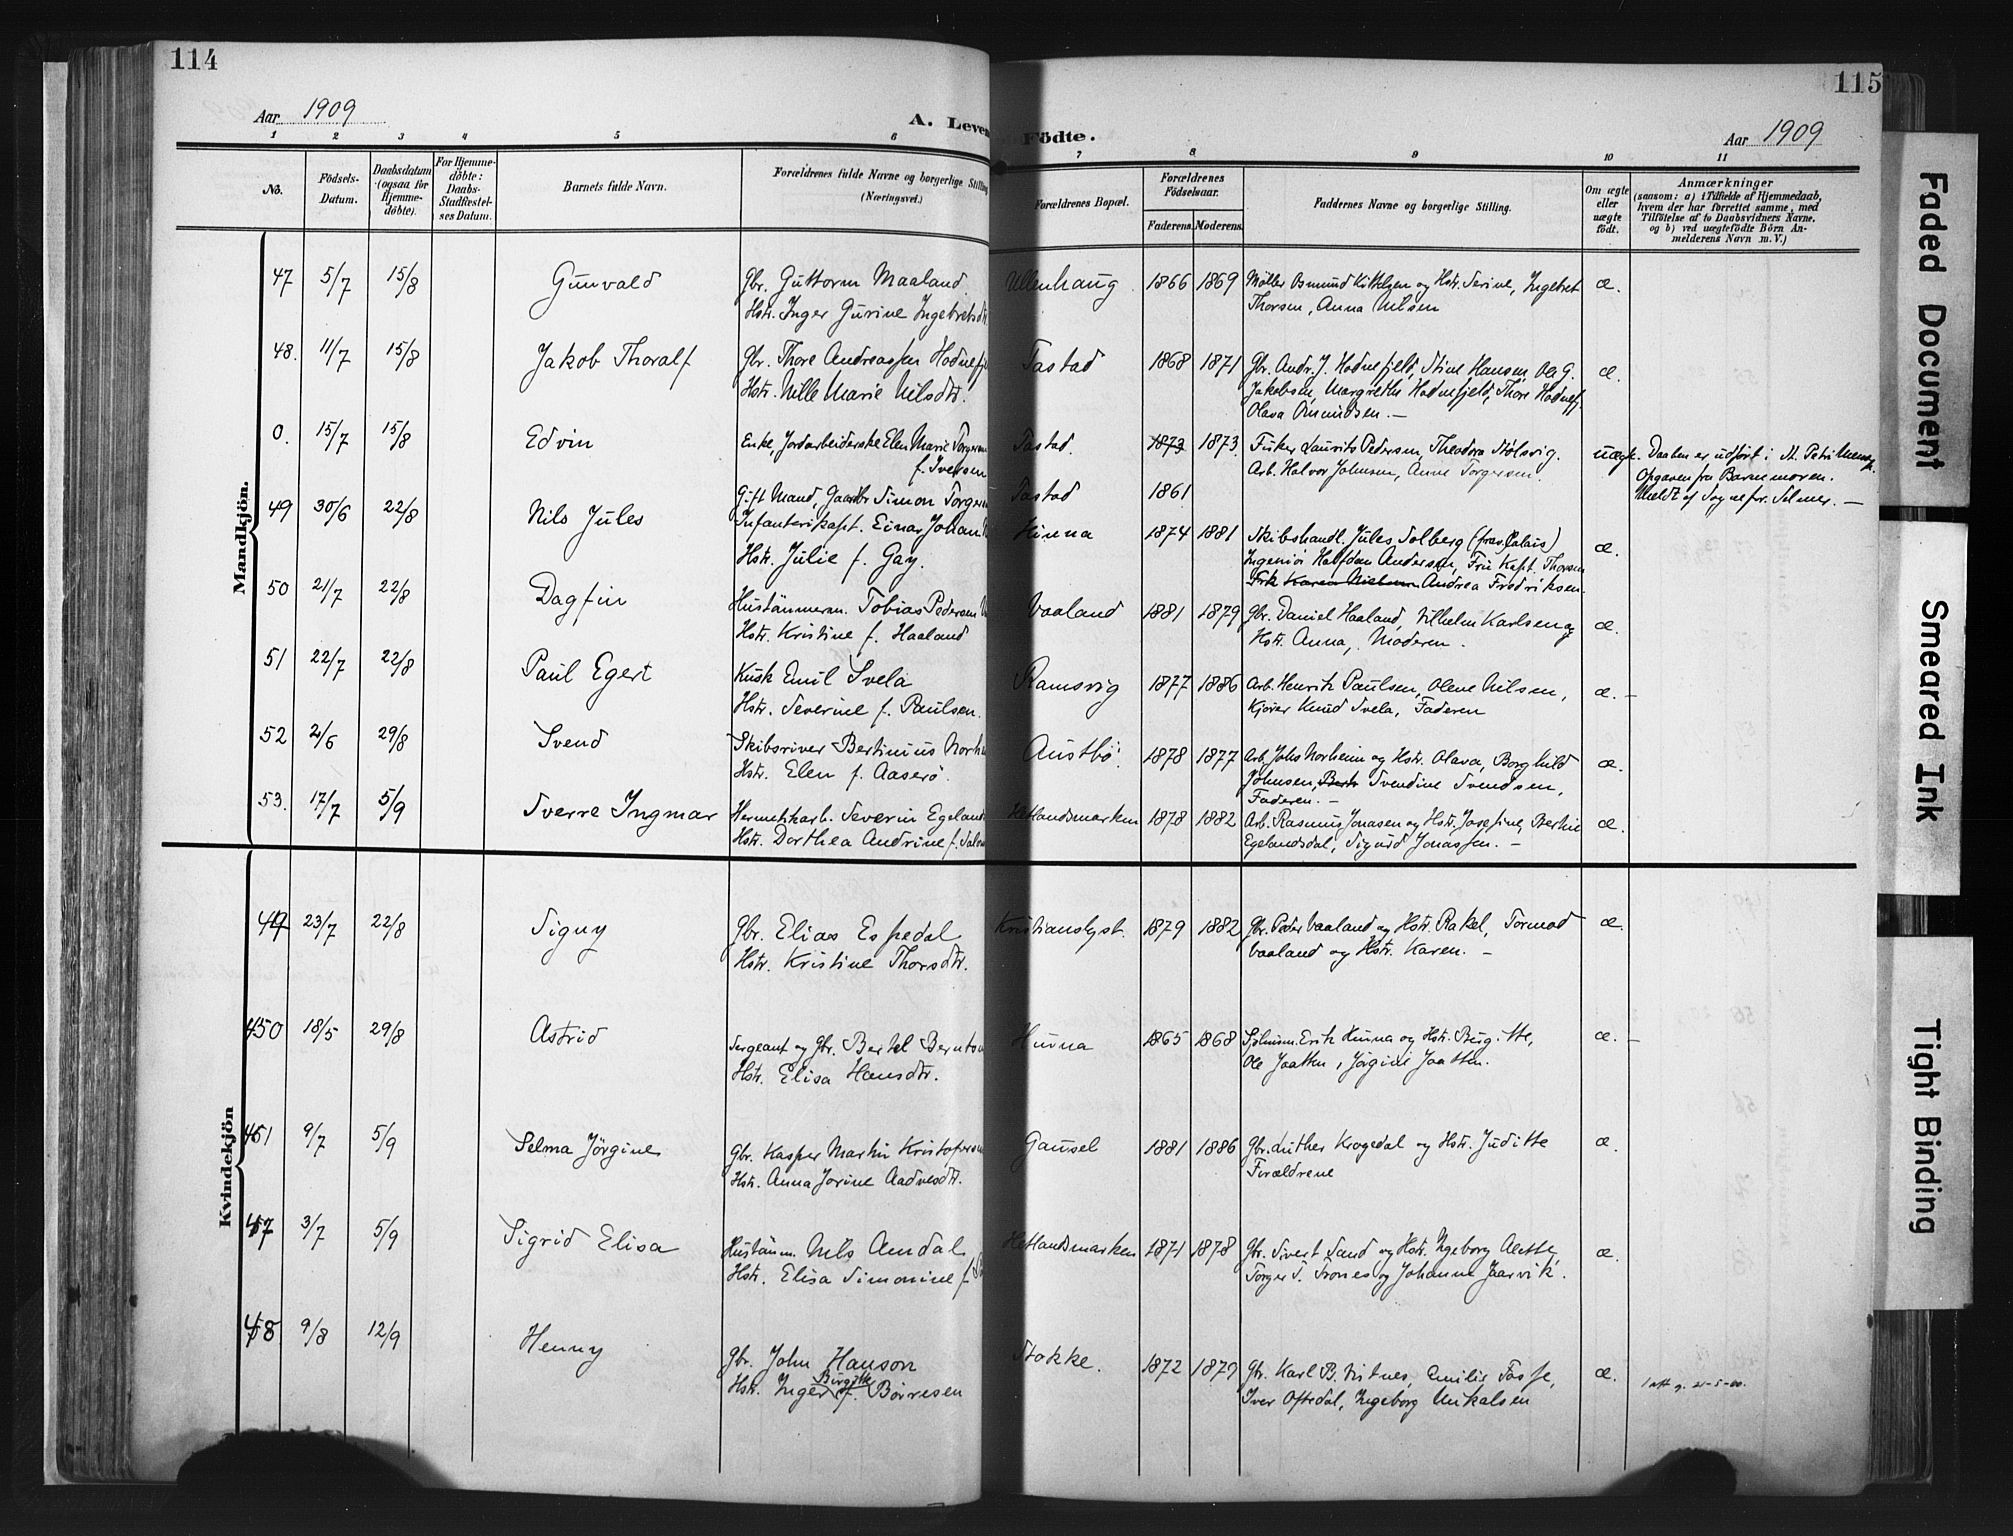 114
Aar 1909
A. Leven
1 2 3 4 5 6
No.
Födsels-
Datum.
Daabsdatum
(ogsaa for
Hjemme-
döbte).
For Hjemme-
döbte:
Daabs-
Stadfæstel-
ses Datum.
Barnets fulde Navn.
Forældrenes fulde Navne og borgerlige Stilling
(Næringsvei.)
Mandkjön.
47 5/7 15/8 Gunvald Gbr. Guttorm Maaland
Hstr. Inger Gurine Ingebretsdtr.
48. 11/7 15/8 Jakob Thoralf Gbr. Thore Andreassen Hodnefj
Hstr. Nille Marie Nilsdtr.
0. 15/7 15/8 Edvin Enke, Jordarbeiderske Elen Marie Torgersen
f. Iversen
Gift Mand, Gaardbr. Simon Torgersen
49 30/6 22/8 Nils Jules Infanterikapt. Einar Johan
Hstr. Julie f. Gay.
50 21/7 22/8 Dagfin Hustömmerm. Tobias Pedersen
Hstr. Kristine f. Haaland
51 22/7 22/8 Paul Egert Kusk Emil Svela
Hstr. Severine f. Paulsen.
52 2/6 29/8 Svend Skibsriver Bertinius Norh
Hstr. Elen f. Aaserö.
53. 17/7 5/9 Sverre Ingmar Hermetikarb. Severin Egeland
Hstr. Dorthea Andrine f. Salo
Kvindekjön
49 23/7 22/8 Signy Gbr. Elias Espedal
Hstr. Kristine Thorsdtr.
50 18/5 29/8 Astrid Sergeant og Gbr. Bertel Berntsen
Hstr. Elisa Hansdtr.
51 9/7 5/9 Selma Jörgine Gbr. Kasper Martin Kristofersen
Hstr. Anna Jorine Aadnesdtr.
47 3/7 5/9 Sigrid Elisa Hustömm. Nils Amdal
Hstr. Elisa Simonine f.
48 9/8 12/9 Henny Gbr. John Hanson
Birgitte
Hstr. Inger f. Börresen
115
Födte.
Aar 1909
7 8 9 10 11
Forældrenes Bopæl.
Forældrenes
Födselsaar.
Faderens. Moderens.
Faddernes Navne og borgerlige Stilling.
Om ægte
eller
uægte
födt.
Anmærkninger
(saasom: a) i Tilfælde af Hjemmedaab,
hvem der har forrettet samme, med
Tilföielse af to Daabsvidners Navne,
og b) ved uægtefödte Börn An-
melderens Navn m. V.)
Ullenhaug 1866 1869 Möller Osmund Kittelsen og Hstr. Serine, Ingebret æ.
Thorsen, Anna Nilsen
Tastad 1868 1871 Gbr. Andr. J. Hodnefjeld, Stine Hansen, Ole G. æ.
Jakobsen, Margrethe Hodnefjeld, Thore Hodnefj.
Olava Omundsen. –
Tastad. 1873 1873. Fisker Laurits Pedersen, Theodora Stölsvig. uægte. Daaben er udfört i St. Petri Menigh.
Arb. Halvor Johnsen, Anne Torgersen. Opgaven fra Barnemoren.
Tastad 1861 Meldt af Sognepr. Selmer. –
Hinna 1874 1881 Skibshandl. Jules Solberg (fra Calais) æ.
Ingeniör Halfdan Andersen, Fru Kapt. Thorsen
Frk. Andrea Fredriksen.
Vaaland 1881 1879 Gbr. Daniel Haaland, Vilhelm Karlsen og æ.
Hstr. Anna, Moderen.
Ramsvig 1877 1886 Arb. Henrik Paulsen, Olene Nilsen, æ. –
Kjörer Knud Svela, Faderen
Austbö. 1878 1877 Arb. Johs Norheim og Hstr. Olava, Borghild æ.
Johnsen, Svendine Svendsen,
Faderen. –
Hetlandsmarken 1878 1882 Arb. Rasmus Jonasen og Hstr. Josefine, Bertine æ.
Egelandsdal, Sigurd Jonassen. –
Kristianslyst. 1879 1882 Gbr. Peder Vaaland og Hstr. Rakel, Tormod æ.
Vaaland og Hstr. Karen. –
Hinna 1865 1868 Erik Hinna og Hstr. Birgitte, æ. –
Ole Jaatten, Jörgine Jaatten.
Gausel 1881 1886 Gbr. Luther Krogedal og Hstr. Juditte æ.
Forældrene
Hetlandsmarken 1871 1878 Gbr. Sivert Sand og Hstr. Ingeborg Alette, æ.
Torger T. Trones og Johanne Jaarvik.
Stokke. 1872 1879 Gbr. Karl B. Vistnes, Emilie Fosse, æ.
Iver Oftedal, Ingeborg Mikalsen
Faded Document
Smeared Ink
Tight Binding